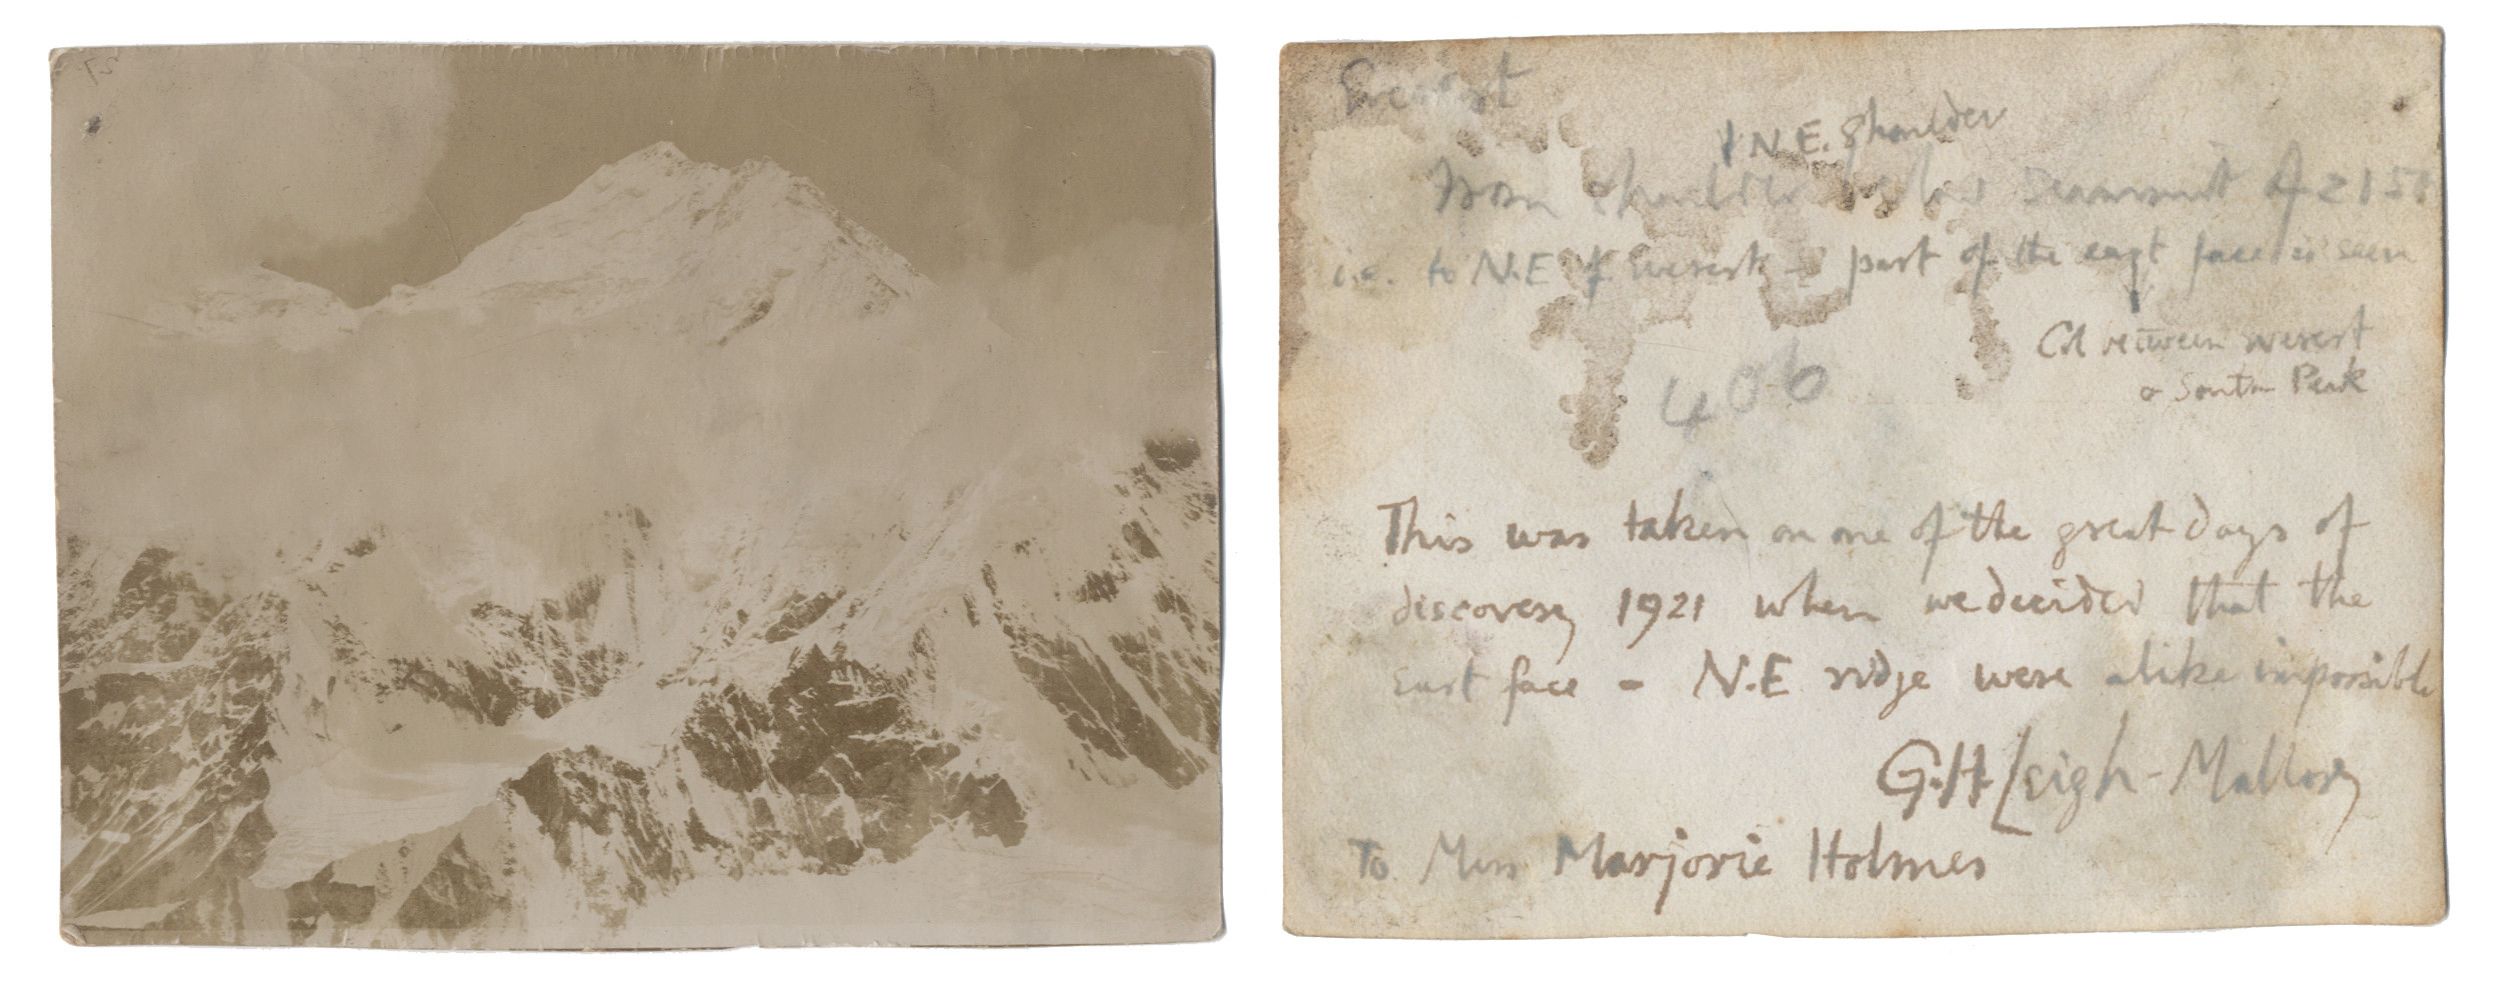 Everest
↓ N.E. Shoulder
from shoulder below summit of 215
i.e. to N.E of Everest – part of the east face is seen
↓
Col between Everest
& South Peak
406
This was taken on one of the great days of
discovery 1921 when we decided that the
East face & N.E ridge were alike impossible
G.H. Leigh-Mallory
To Miss Marjorie Holmes